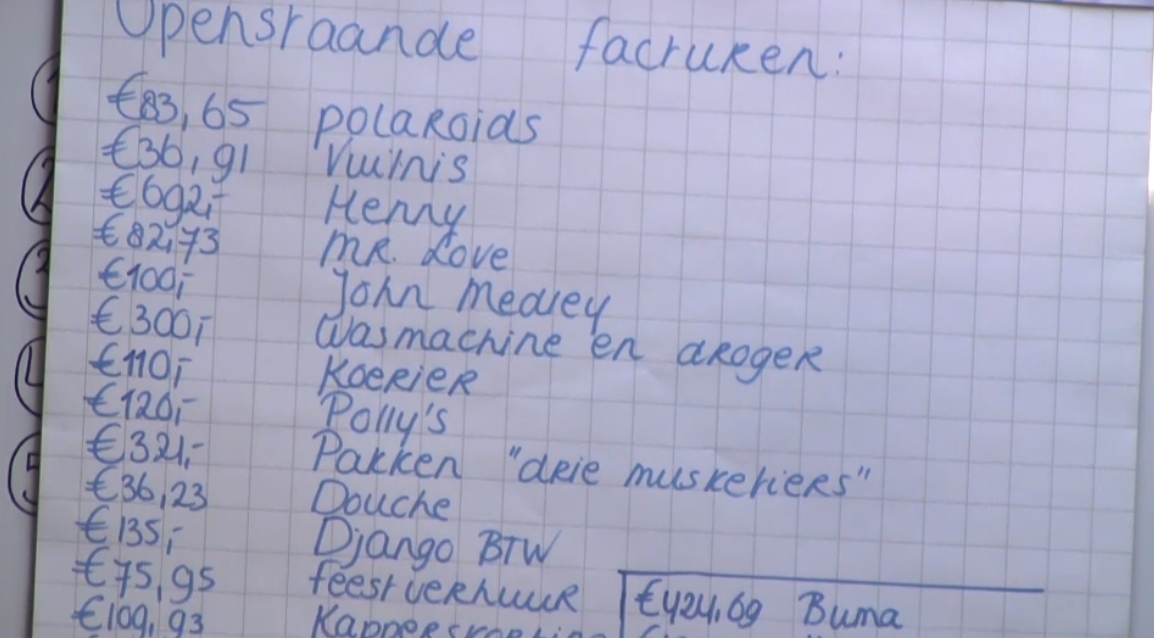 Openstaande facturen:
€83,65 polaroids
€36,91 Vuilnis
€692,- Henny
€82,73 MR. Love
€100,- John Medley
€300,- Wasmachine en droger
€110,- Koerier
€120,- Polly's
€321,- Pakken "drie musketiers"
€36,23 Douche
€135,- Django BTW
€75,95 feestverhuur
€424,69 Buma
€109,93
1
2
3
4
5